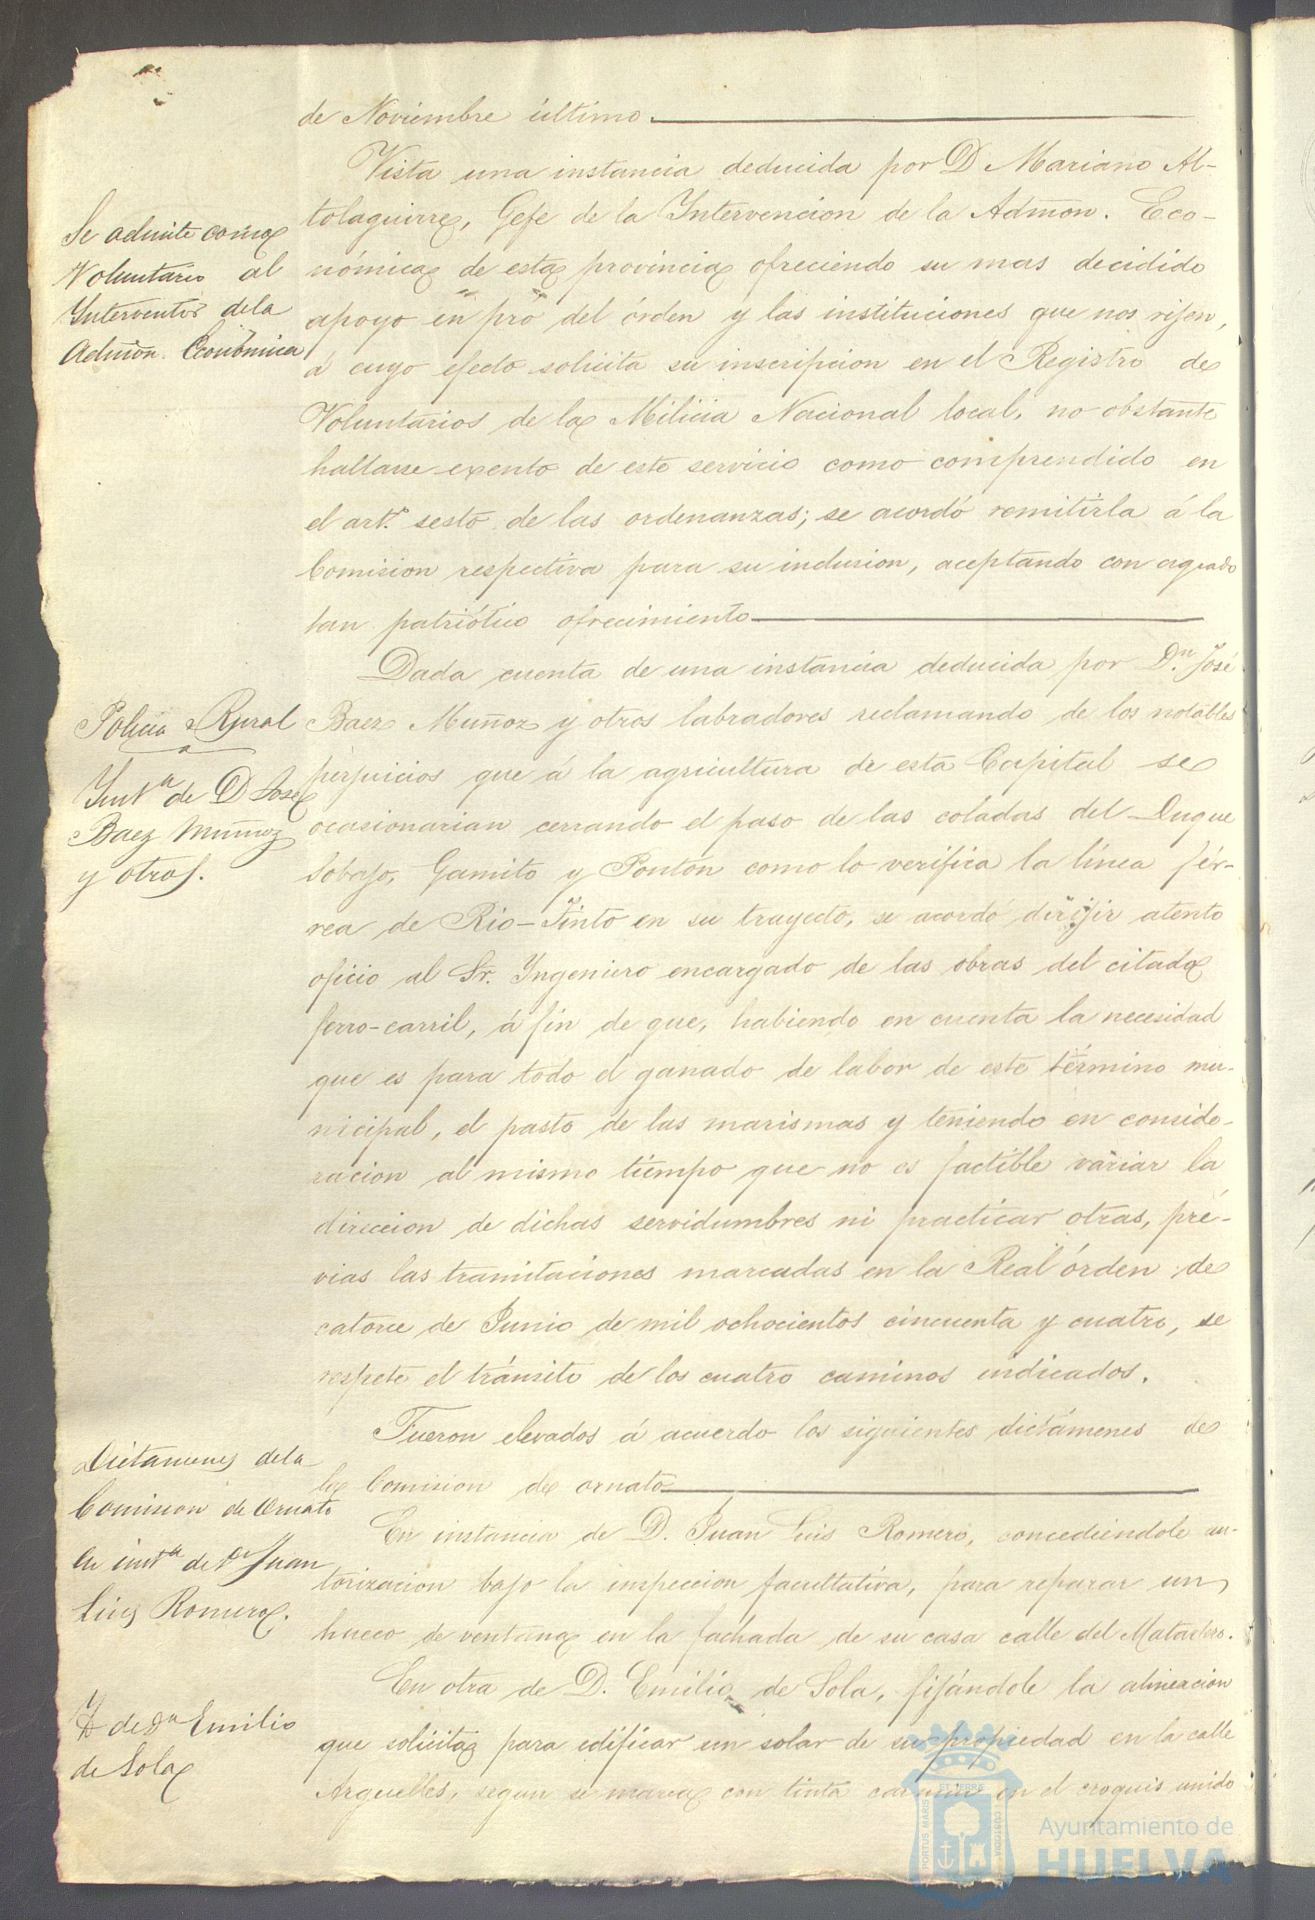 de Noviembre último.
Vista una instancia deducida por D Mariano Al-
tolaguirre, Gefe de la Intervencion de la Admon. Eco-
nómica de esta provincia ofreciendo su mas decidido
apoyo en pro del órden y las instituciones que nos rijen,
á cuyo efecto solicita su inscripcion en el Registro de
Voluntarios de la Milicia Nacional local, no obstante
hallarse exento de este servicio como comprendido en
el art.º sesto de las ordenanzas; se acordó remitirla á la
Comision respectiva para su inclusion, aceptando con agrado
tan patriótico ofrecimiento
Se admite como
Voluntario al
Interventor de la
Admon. Económica
Dada cuenta de una instancia deducida por D.n José
Baez Muñoz y otros labradores reclamando de los notables
perjuicios que á la agricultura de esta Capital se
ocasionarian cerrando el paso de las coladas del Duque
Lobajo, Gamito y Ponton como lo verifica la línea fér-
rea de Rio-Tinto en su trayecto, se acordó dirijir atento
oficio al Sr. Ingeniero encargado de las obras del citado
ferro-carril, á fin de que, habiendo en cuenta la necesidad
que es para todo el ganado de labor de este término mu-
nicipal, el pasto de las marismas y teniendo en conside-
racion al mismo tiempo que no es factible variar la
direccion de dichas servidumbres ni practicar otras, pré-
vias las tramitaciones marcadas en la Real órden de
catorce de Junio de mil ochocientos cincuenta y cuatro, se
respete el tránsito de los cuatro caminos indicados.
Policia Rural
Inst.a de D José
Baez Muñoz
y otros.
Fueron elevados á acuerdo los siguientes dictámenes de
la Comision de ornato
En instancia de D. Juan Luis Romero, concediéndole au-
torizacion bajo la inspeccion facultativa, para reparar un
hueco de ventana en la fachada de su casa calle del Matadero.
Dictamenes de la
Comision de Ornato
en inst.a de D.n Juan
Luis Romero.
En otra de D. Emilio de Sola, fijándole la alineacion
que solicita para edificar un solar de su propiedad en la calle
Arguelles, segun se marca con tinta carmin en el croquis unido
Y de D.n Emilio
de Sola
PORTUS MARIS ET TERRE CUSTODIA
Ayuntamiento de
HUELVA